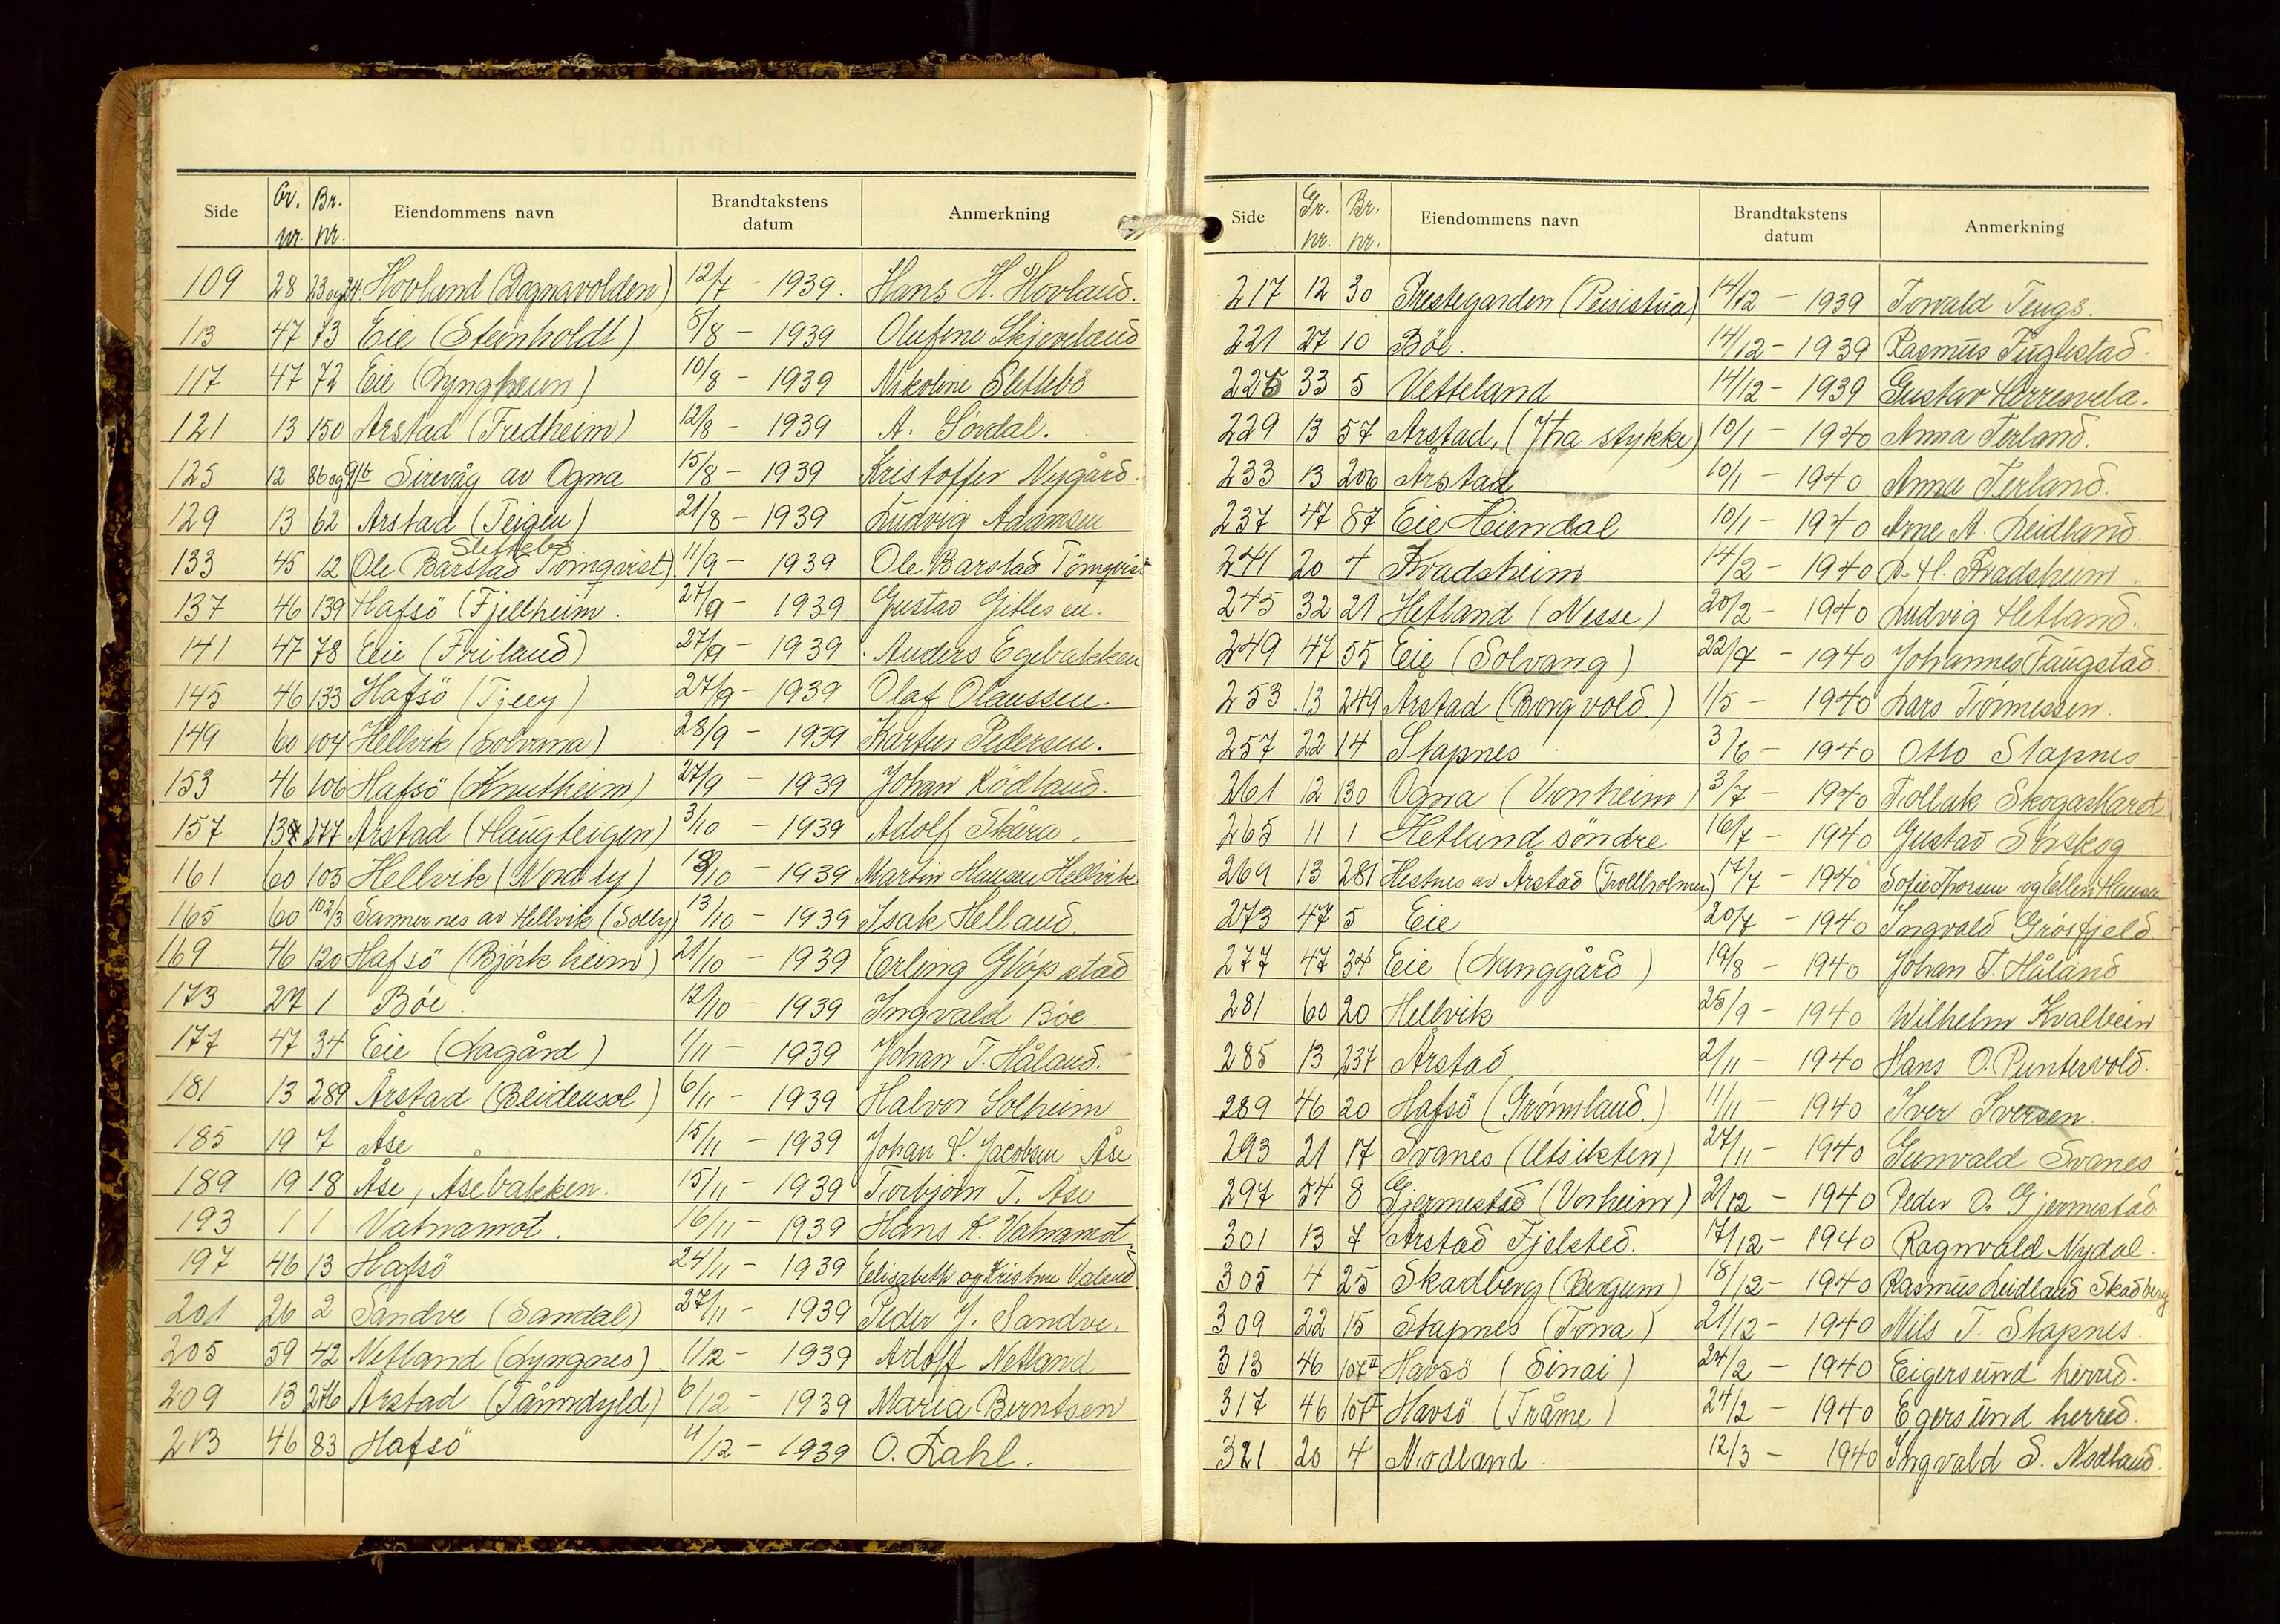 Side Gr. nr. Br. nr. Eiendommens navn Brandtakstens datum Anmerkning
109 28 23 og 24 Hovland (Dognavolden) 12/7 - 1939. Hans H. Hovland.
113 47 73 Eie (Steinholdt) 8/8 - 1939 Olufine Skjeveland
117 47 72 Eie (Lyngheim) 10/8 - 1939 Nikoline Slettebö
121 13 150 Årstad (Fredheim) 12/8 - 1939 A. Sördal.
125 12 86 og Sirevåg av Ogna 15/8 - 1939 Kristoffer Nygård.
129 13 62 Årstad (Teigen) 21/8 - 1939 Ludvig Aadnesen
133 45 12 Slettebö Ole Barstad Törnqvist) 11/9 - 1939 Ole Barstad Törnqvist
137 46 139 Hafsö (Fjellheim. 27/9 - 1939 Gustav Gitlesen.
141 47 78 Eie (Friland) 27/9 - 1939 Anders Egebakken
145 46 133 Hafsö 27/9 - 1939 Olaf Olaussen.
149 60 104 Hellvik (Solvana) 28/9 - 1939 Pedersen.
153 46 106 Hafsö (Knutheim) 27/9 - 1939 Johan Rödland.
157 13 277 Årstad (Haugteigen) 3/10 - 1939 Adolf Skåra.
161 60 105 Hellvik (Nordly) /10 - 1939 Martin Hansen Hellvik
165 60 102/3 Sannernes av Hellvik (Solly) 13/10 - 1939 Isak Helland.
169 46 120 Hafsö (Björkheim) 21/10 - 1939 Erling Glöpstad
173 27 1 Böe. 12/10 - 1939 Ingvald Böe
177 47 34 Eie (Lagård) 1/11 - 1939 Johan T. Håland.
181 13 289 Årstad (Bleidensol) 6/11 - 1939 Halvor Solheim
185 19 7 Åse 15/11 - 1939 Johan Jacobsen Åse
189 19 18 Åse, Åsebakken. 15/11 - 1939 Torbjörn T. Åse
193 1 1 Vatnamot. 16/11 - 1939 Hans K. Vatnamot
197 46 13 Hafsö 24/11 - 1939 Elisabeth og Kristine Valand
201 26 2 Sandve (Sandal) 27/11 - 1939 Peder J. Sandve.
205 59 42 Netland (Lyngnes) 1/12 - 1939 Adolf Netland
209 13 276 Årstad 6/12 - 1939 Maria Berntsen
213 46 83 Hafsö 4/12 - 1939 O. Zahl.
Side Gr. nr. Br. nr. Eiendommens navn Brandtakstens datum Anmerkning
217 12 30 Prestegarden (Peisistua) 14/12 - 1939 Torvald Tengs.
221 27 10 Böe. 14/12 - 1939 Rasmus Fuglestad.
225 33 5 Vetteland 14/12 - 1939 Gustav Herresvela.
229 13 57 Årstad, (Ytra stykke) 10/1 - 1940 Anna Terland.
233 13 206 Årstad 10/1 - 1940 Anna Terland.
237 47 87 Eie Heiendal 10/1 - 1940 Arne A. Leidland.
241 20 4 Kvadsheim 14/2 - 1940 D. H. Kvadsheim.
245 32 21 Hetland (Nesse) 20/2 - 1940 Ludvig Hetland.
249 47 55 Eie (Solvang) 22/4 - 1940 Johannes Faugstad
253 13 249 Årstad (Borgvold.) 1/5 - 1940 Lars Tönnessen.
257 22 14 Stapnes 3/6 - 1940 Otto Stapnes
261 12 130 Ogna (Vonheim) 3/7 - 1940 Tollak Skogaskaret
265 11 1 Hetland söndre 16/7 - 1940 Gustav Sörskog
269 13 281 Hestnes av Årstad (Trollholmen) 17/7 - 1940 Sofie Thorsen og Ellen Hansen
273 47 5 Eie 20/7 - 1940 Ingvald Grösfjeld
277 47 34 Eie (Langgård) 19/8 - 1940 Johan T. Håland
281 60 20 Hellvik 25/9 - 1940 Wilhelm Kvalbein
285 13 237 Årstad 2/11 - 1940 Hans O. Puntervold.
289 46 20 Hafsö (Grönnland.) 11/11 - 1940 Iver Iversen.
293 21 17 Svanes (Utsikten) 27/11 - 1940 Gunvald Svanes
297 54 8 Gjermestad (Vonheim) 2/12 - 1940 Peder O. Gjermestad
301 13 7 Årstad Fjelsted. 17/12 - 1940 Ragnvald Nydal.
305 4 25 Skadberg (Bergum) 18/12 - 1940 Rasmus Leidland Skadberg
309 22 15 Stapnes (Tona) 21/12 - 1940 Nils T. Stapnes.
313 46 107II Havsö (Sinai) 24/2 - 1940 Eigersund herred.
317 46 107I Havsö (Tråme) 24/2 - 1940 Egersund herred.
321 20 4 Nodland. 12/3 - 1940 Ingvald S. Nodland.